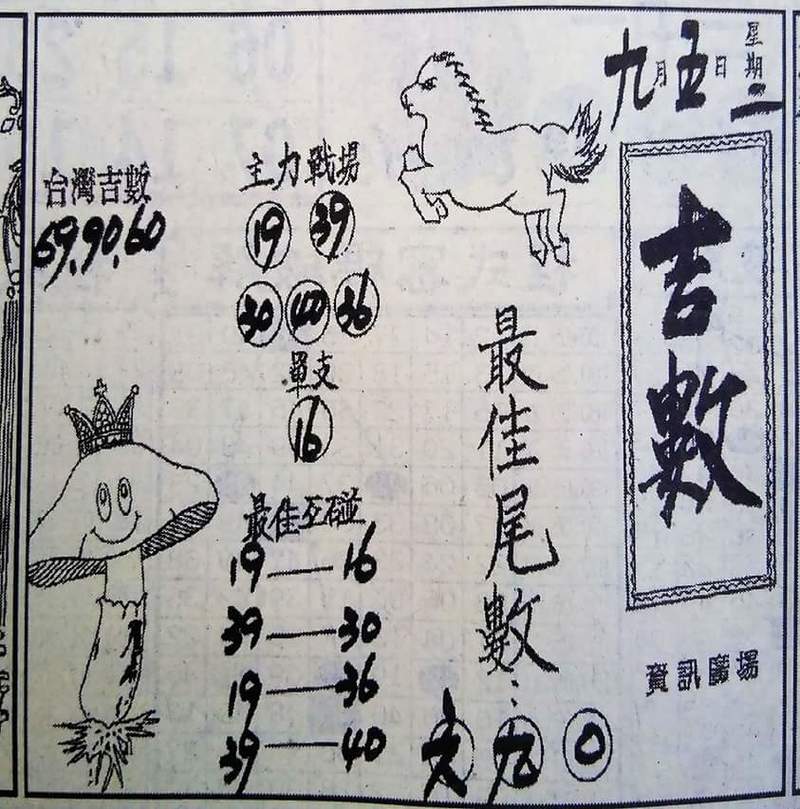 九月五日星期二
吉數
資訊廣場
最佳尾數：六九0
主力戰場
19 39
30 40 36
單支
16
最佳互碰
19—16
39—30
19—36
39—40
台灣吉數
69,90,60